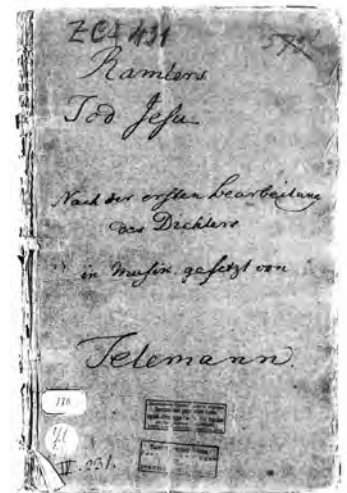 ZC4 431
Ramlers
Tod Jesu
Nach der ersten Bearbeitung
des Dichters
in Musik gesetzt von
Telemann.